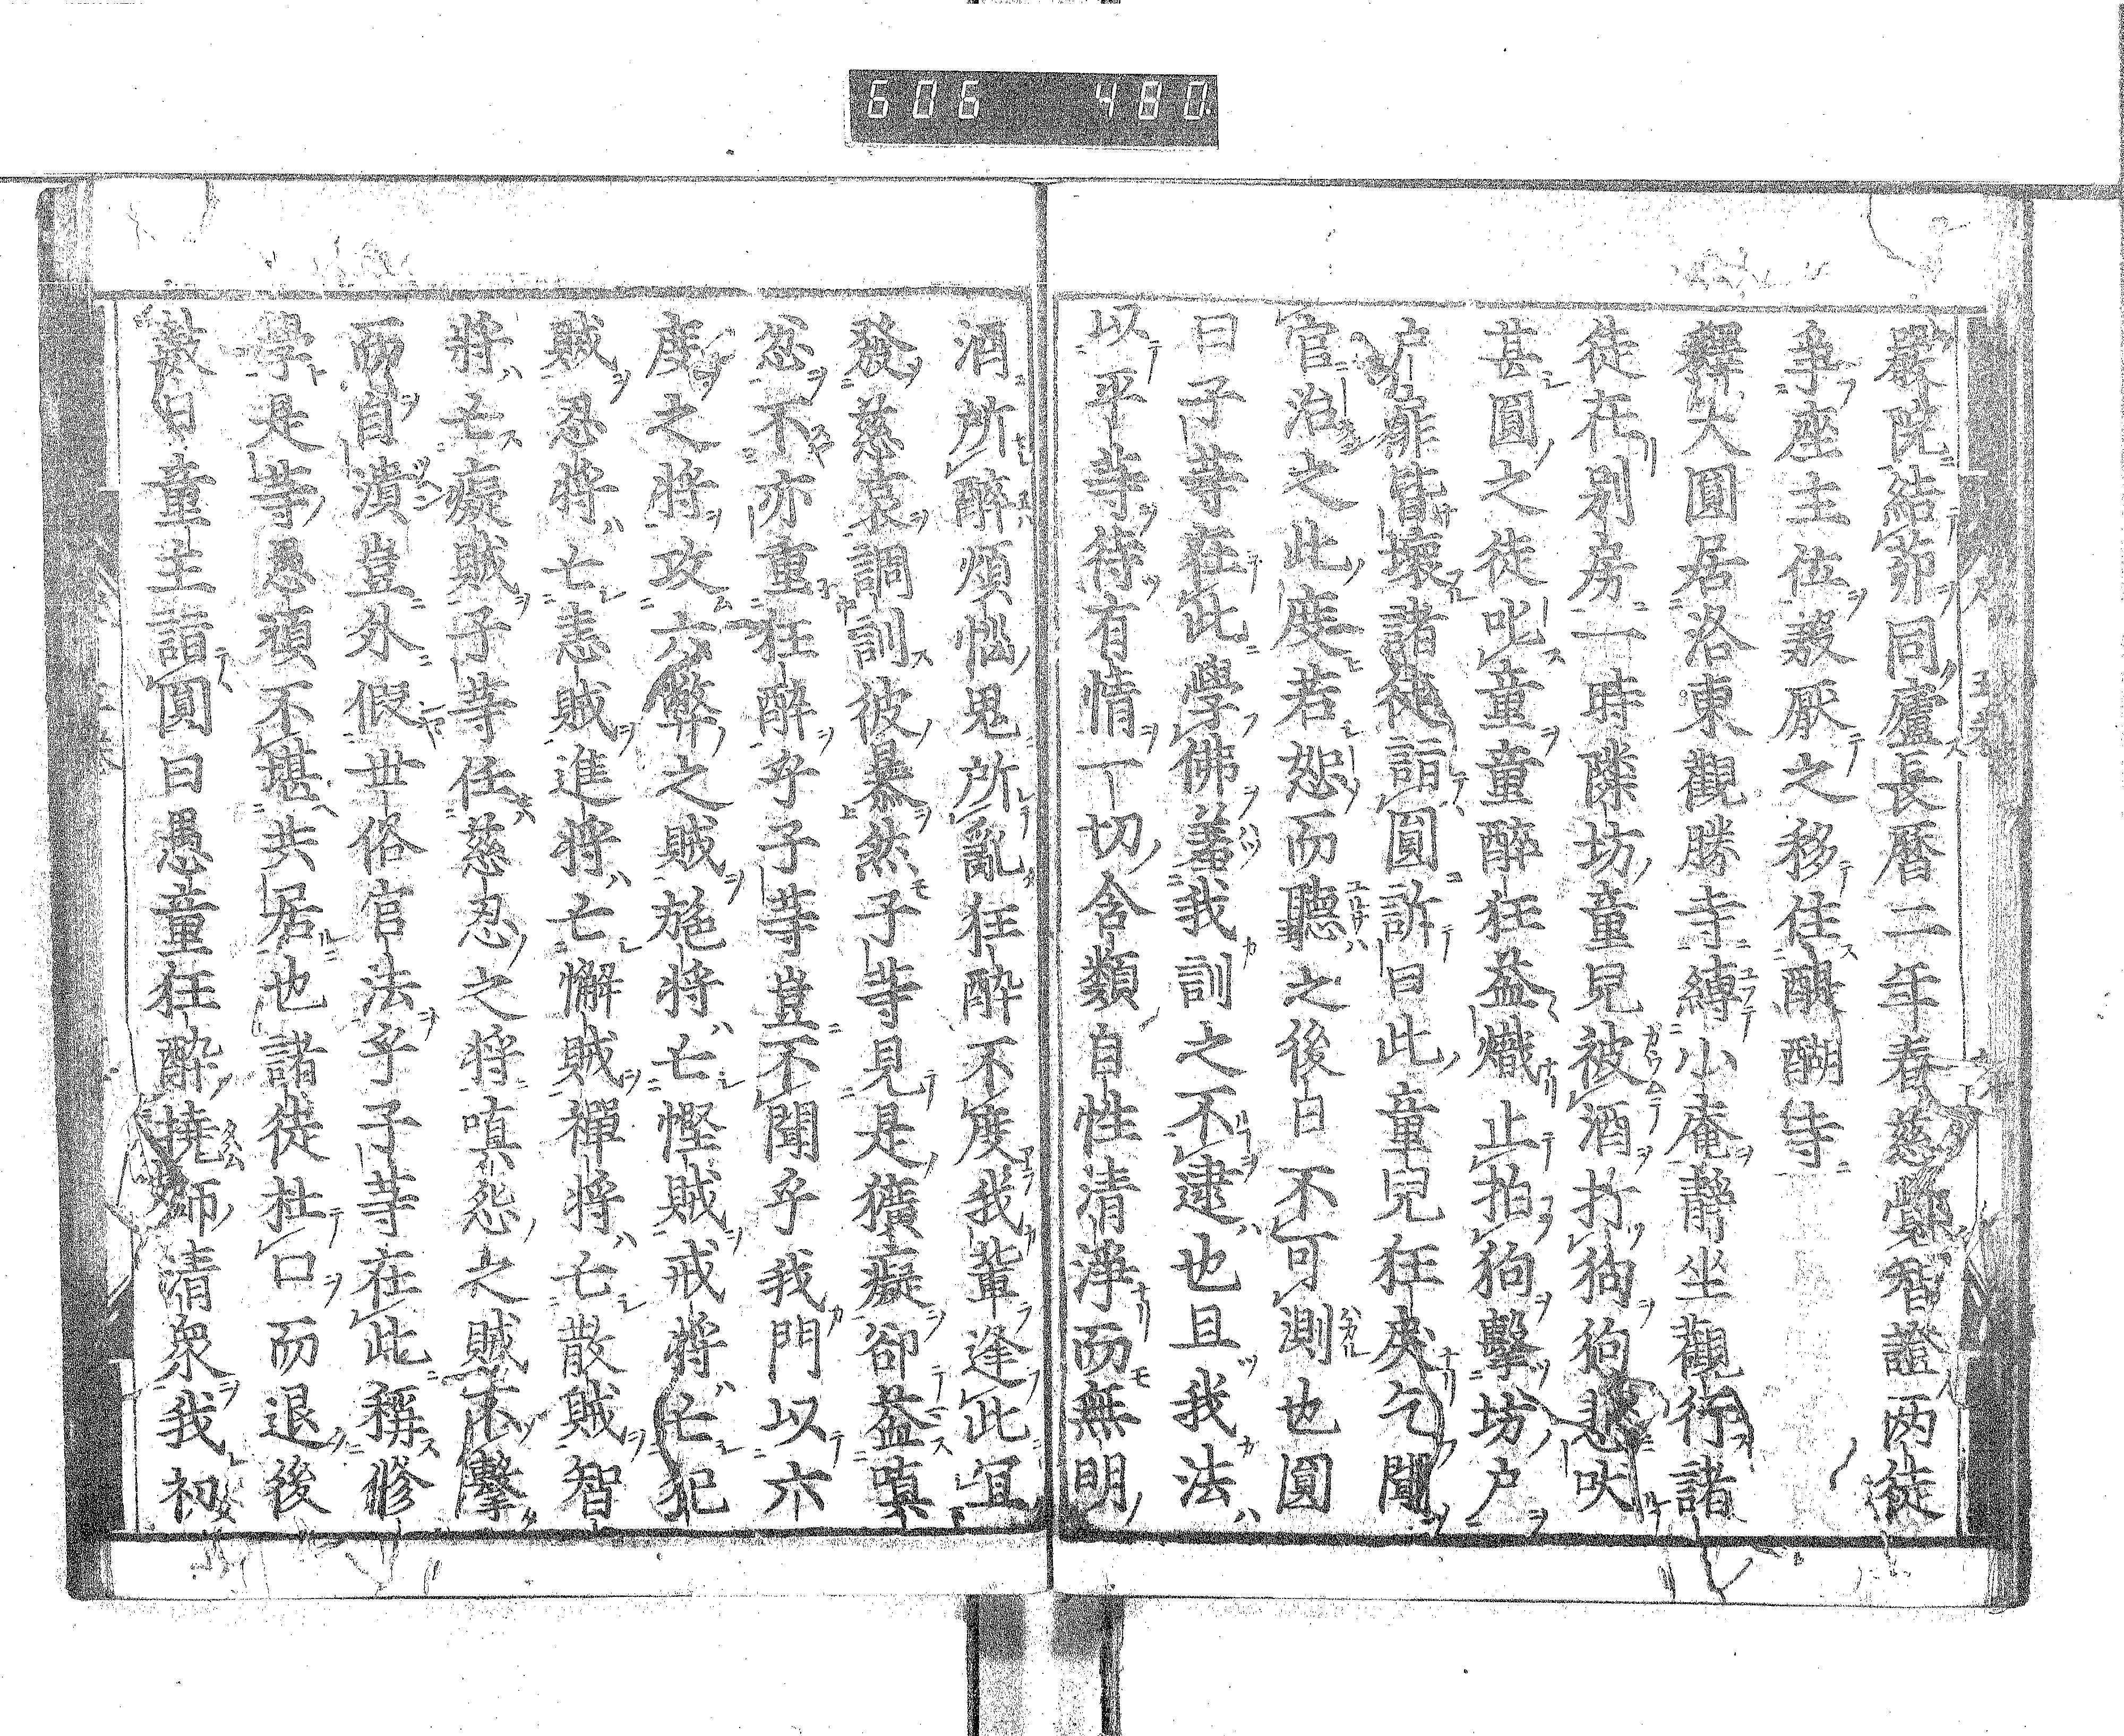 606 480
嚴院結節同廬長曆二年春慈覺智證兩徒
爭座主位嚴厭之移住醍醐寺
釋大圓居洛東觀勝寺縛小庵靜坐觀行諸
徒在別房一時隣坊童兒被酒打狗狗悲吠
甚圓之徒叱童童醉狂益熾止拍狗擊坊户
户扉皆壞諸徒詣圓訴曰此童兒狂戾乞聞
官治之此度若恕而聽之後日不可測也圓
曰子等在此學佛羞我訓之不逮也且我法
以平等待有情一切含類自性清淨而無明
酒所醉煩惱鬼所亂狂醉不度我輩逢此宜
發慈哀調訓彼暴然子等見是獷癡卻益嗔
忿不亦重狂醉乎子等豈不聞乎我門以六
度之將攻六弊之賊施將亡慳賊戒將亡犯
賊忍將亡恚賊進將亡懈賊禪將亡散賊智
將亡癡賊子等任慈忍之將嗔怨之賊不擊
而自潰豈外假世俗官法乎子等在此稱修
學是等愚頑不堪共居也諸徒杜口而退後
數日童主詣圓曰愚童狂醉撓師清衆我初